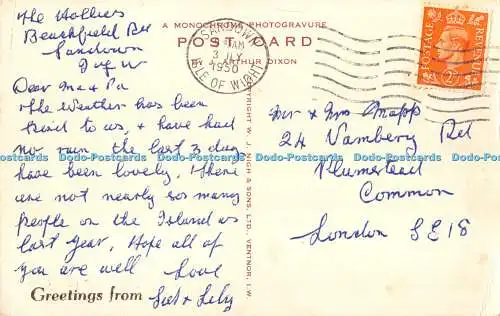 The Hollies
Beachfield Rd
Sandown
I of W
Dear Ma & Pa
The Weather has been
kind to us, & have had
no rain the last 3 days
have been lovely. There
are not nearly so many
people on the Island as
last year, Hope all of
you are well Love
Greetings from
& Lily
A MONOCHROME PHOTOGRAVURE
POST CARD
BY ARTHUR DIXON
SANDOWN
1950
ISLE OF WIGHT
POSTAGE
REVENUE
COPYRIGHT W. J. NIGH & SONS, LTD., VENTNOR, I.W.
Mr & Mrs Mapp
24 Vambery Rd
Plumstead
Common
London SE18
Dodo-Postcards Dodo-Postcards Dodo-Postcards Dodo-Postcards Dodo-Postcards